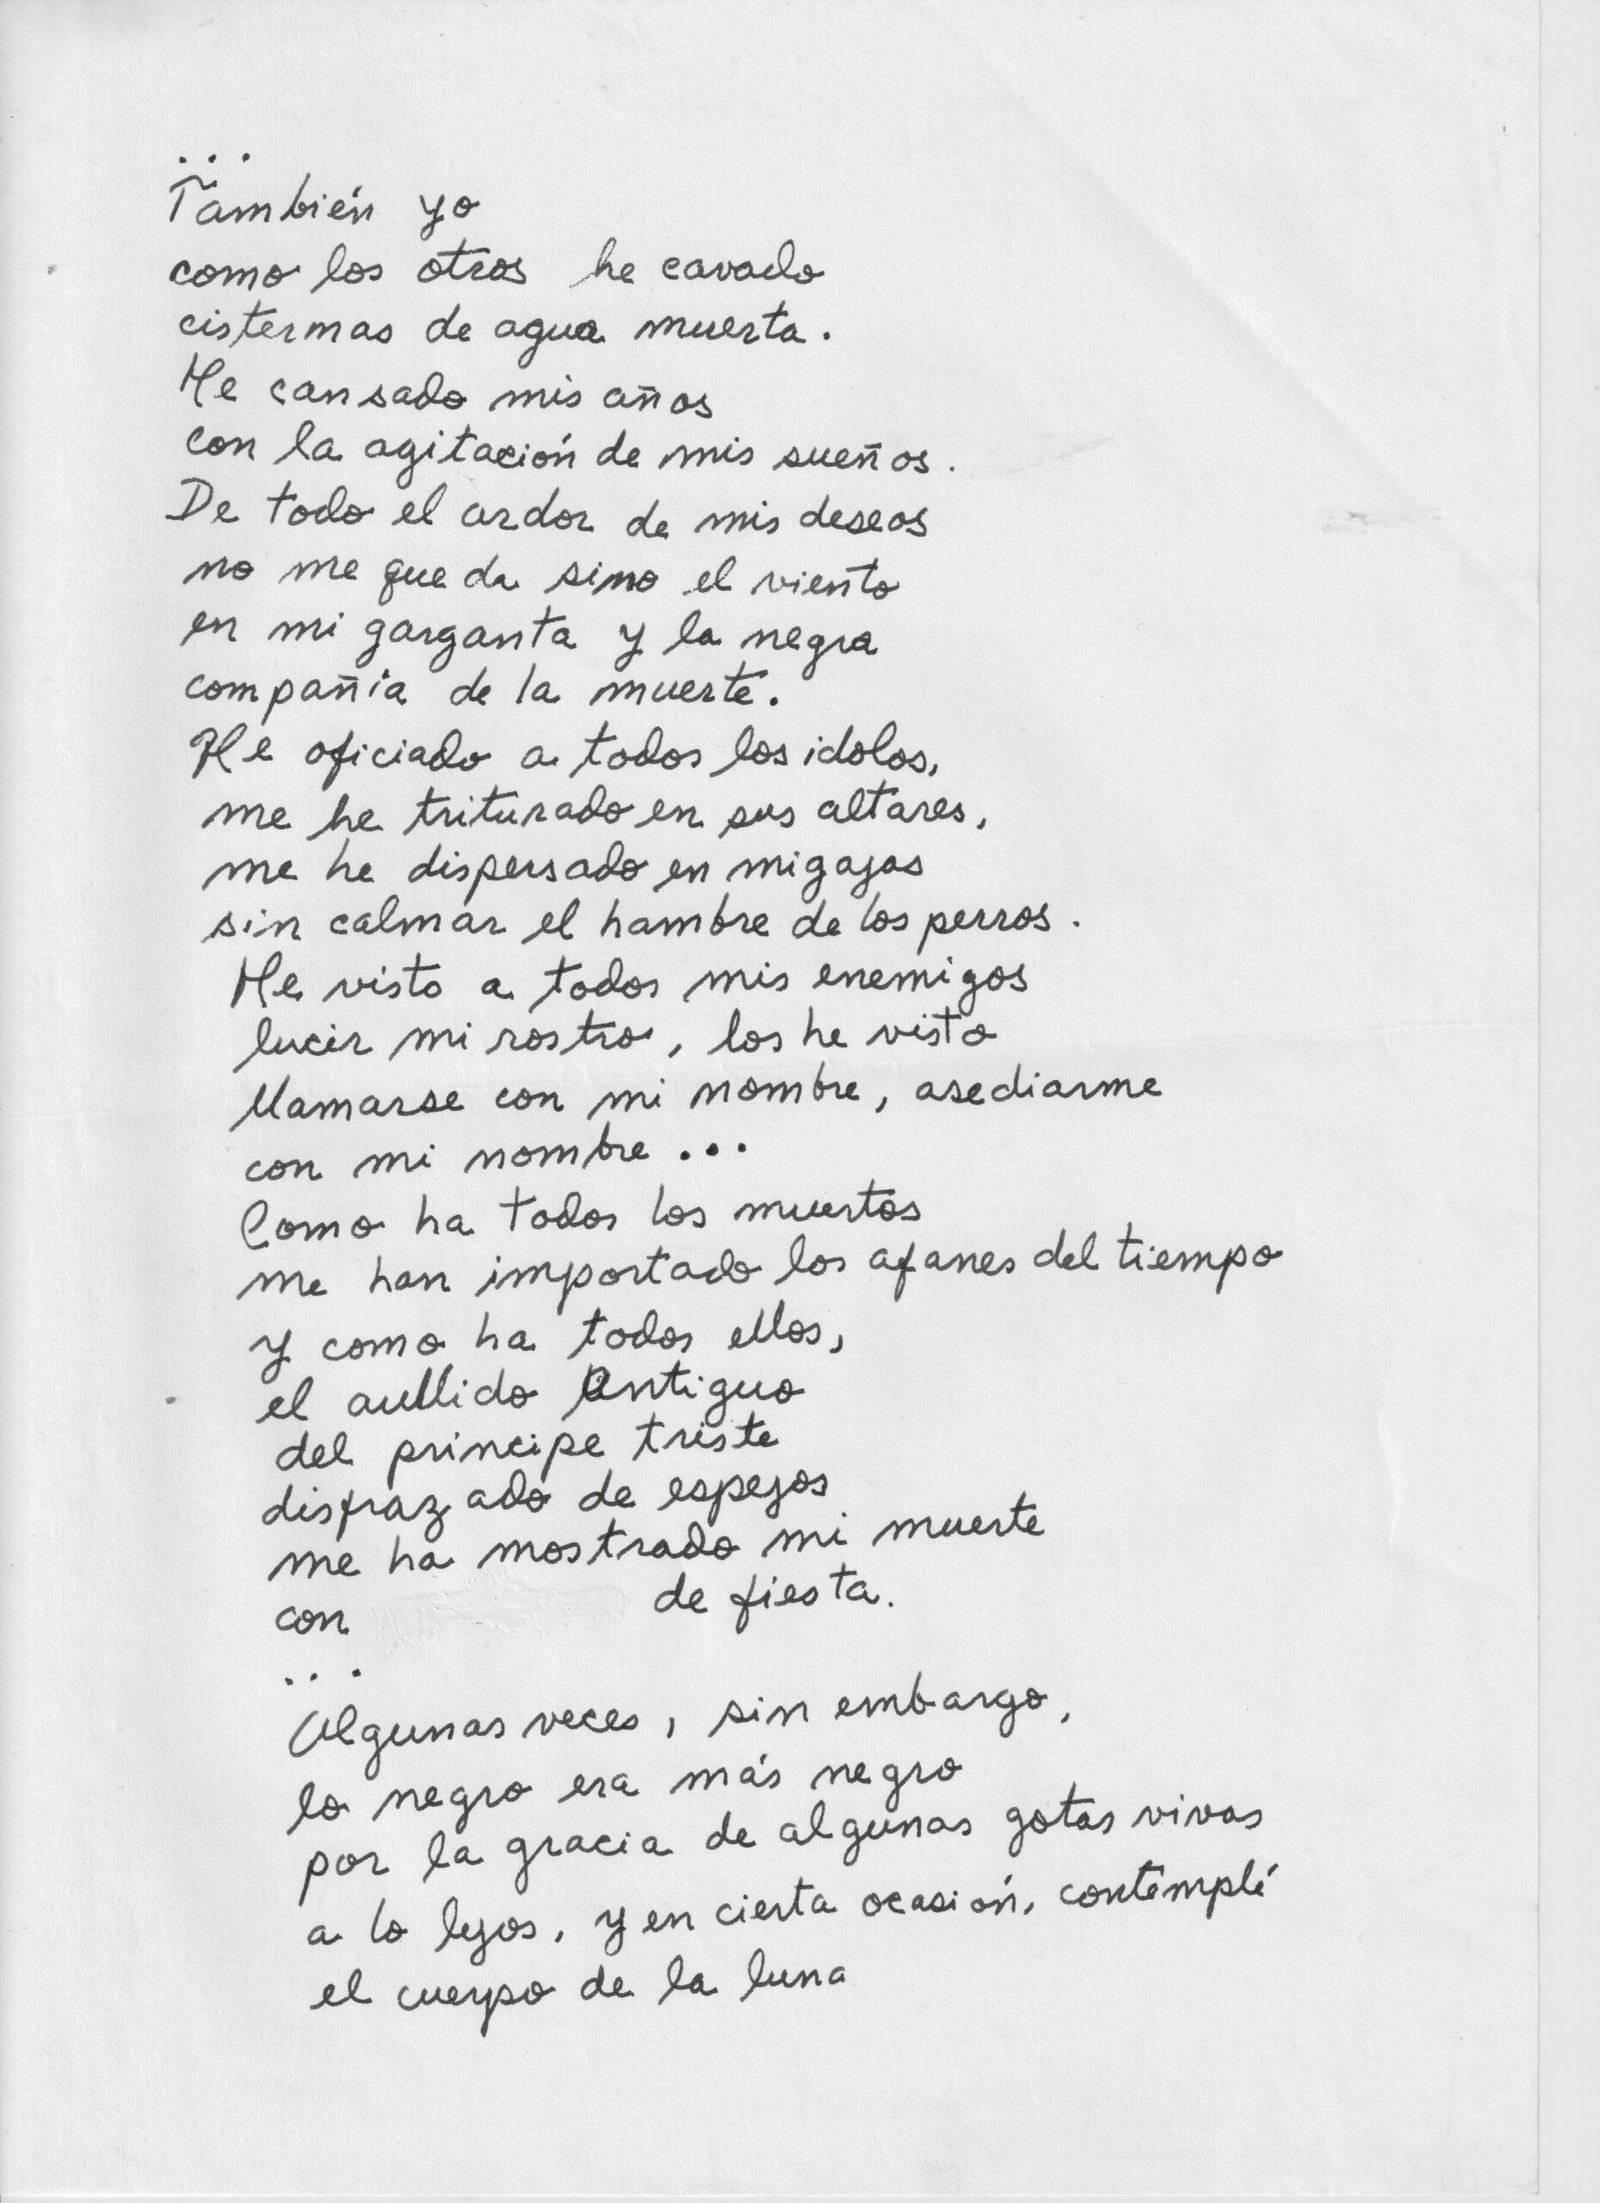 ...
También yo
como los otros he cavado
cisternas de agua muerta.
He cansado mis años
con la agitación de mis sueños.
De todo el ardor de mis deseos
no me queda sino el viento
en mi garganta y la negra
compañía de la muerte.
He oficiado a todos los idolos,
me he triturado en sus altares,
me he dispersado en migajas
sin calmar el hambre de los perros.
He visto a todos mis enemigos
lucir mi rostro, los he visto
llamarse con mi nombre, asediarme
con mi nombre...
Como ha todos los muertos
me han importado los afanes del tiempo
y como ha todos ellos,
el aullido antiguo
del príncipe triste
disfrazado de espejos
me ha mostrado mi muerte
con de fiesta.
...
Algunas veces, sin embargo,
lo negro era más negro
por la gracia de algunas gotas vivas
a lo lejos, y en cierta ocasión, contemplé
el cuerpo de la luna